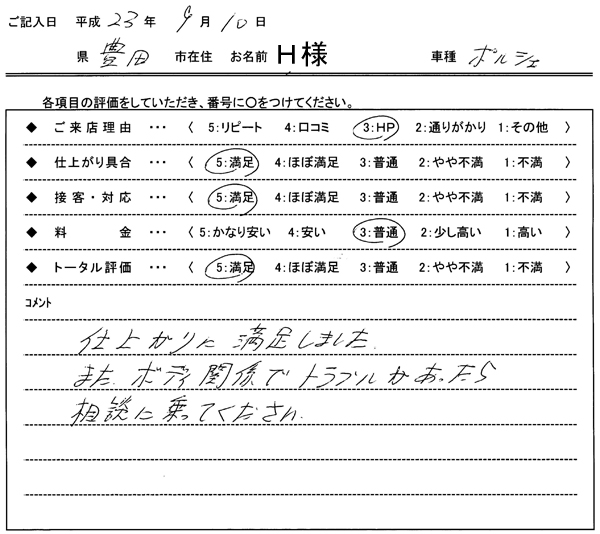 ご記入日 平成 23 年 9 月 10 日
県 豊田 市在住 お名前 H様 車種 ポルシェ
各項目の評価をしていただき、番号に○をつけてください。
◆ ご来店理由 ・・・ 〈 5:リピート 4:口コミ 3:HP 2:通りがかり 1:その他 〉
◆ 仕上がり具合 ・・・ 〈 5:満足 4:ほぼ満足 3:普通 2:やや不満 1:不満 〉
◆ 接客・対応 ・・・ 〈 5:満足 4:ほぼ満足 3:普通 2:やや不満 1:不満 〉
◆ 料金 ・・・ 〈 5:かなり安い 4:安い 3:普通 2:少し高い 1:高い 〉
◆ トータル評価 ・・・ 〈 5:満足 4:ほぼ満足 3:普通 2:やや不満 1:不満 〉
コメント
仕上がりに満足しました。
また、ボディ関係でトラブルがあったら
相談に乗ってください。